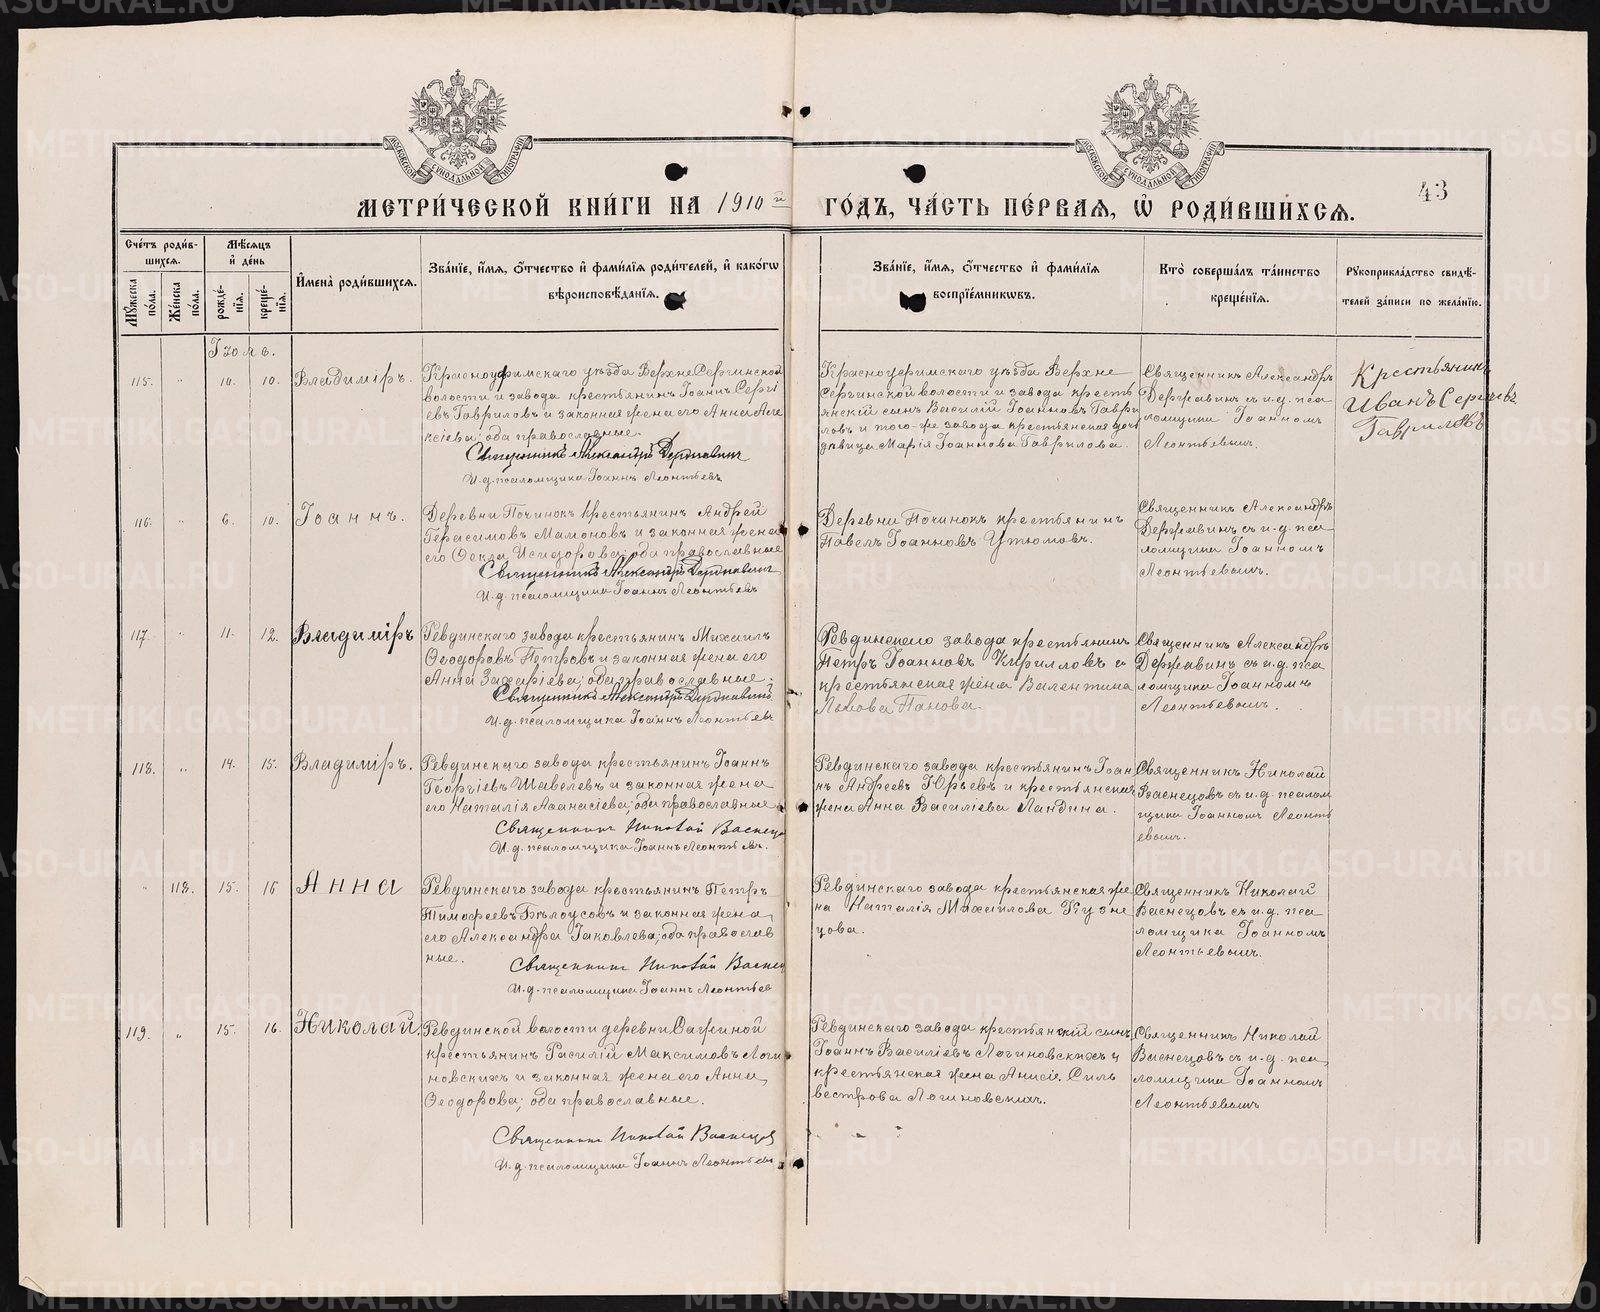 МЕТРИ́ЧЕСКОЙ КНИ́ГИ НА 1910 й ГО́ДЪ, ЧА́СТЬ ПЕ́РВАЯ, Ѽ РОДИ́ВШИХСЯ.
43
Сче́тъ роди́в-
шихся.
Мѣ́сяцъ
и҆ де́нь
Му́жеска
по́ла.
Же́нска
по́ла.
рожде́-
нїя.
креще́-
нїя.
И҆мена̀ роди́вшихся.
Зва́нїе, и҆́мя, ѻ҆́тчество и҆ фами́лїя роди́телей, и҆ како́гѡ
вѣроисповѣ́данїя.
Зва́нїе, и҆́мя, ѻ҆́тчество и҆ фами́лїя
воспрїе́мникѡвъ.
Кто̀ соверша́лъ та́инство
креще́нїя.
Рукоприкла́дство свидѣ́-
телей за́писи по жела́нїю.
Іюль.
115. " 10. 10. Владиміръ.
Красноуфимскаго уѣзда Верхне Сергинской
волости и завода крестьянинъ Іоаннъ Сергі
евъ Гавриловъ и законная жена его Анна Але
ксіева; оба православные.
Священникъ Александръ Державинъ
И. д. псаломщика Іоаннъ Леонтьевъ
Красноуфимскаго уѣзда Верхне
Сергинской волости и завода кресть
янскій сынъ Василій Іоанновъ Гаври
ловъ и того-же завода крестьянская дочь
дѣвица Марія Іоаннова Гаврилова.
Священникъ Александръ
Державинъ съ и. д. пса
ломщика Іоанномъ
Леонтьевымъ.
Крестьянинъ
Иванъ Сергѣевъ
Гавриловъ
116. " 6. 10. Іоаннъ.
Деревни Починокъ крестьянинъ Андрей
Герасимовъ Мамоновъ и законная жена
его Ѳекла Исидорова; оба православные
Священникъ Александръ Державинъ
И. д. псаломщика Іоаннъ Леонтьевъ
Деревни Починокъ крестьянинъ
Павелъ Іоанновъ Утюмовъ.
Священникъ Александръ
Державинъ съ и. д. пса
ломщика Іоанномъ
Леонтьевымъ.
117. " 11. 12. Владиміръ
Ревдинскаго завода крестьянинъ Михаилъ
Ѳеодоровъ Петровъ и законная жена его
Анна Захаріева; оба православные.
Священникъ Александръ Державинъ
И. д. псаломщика Іоаннъ Леонтьевъ
Ревдинскаго завода крестьянинъ
Петръ Іоанновъ Кирилловъ и
крестьянская жена Валентина
Панова.
Священникъ Александръ
Державинъ съ и. д. пса
ломщика Іоанномъ
Леонтьевымъ.
118. " 14. 15. Владиміръ.
Ревдинскаго завода крестьянинъ Іоаннъ
Георгіевъ Шавелевъ и законная жена
его Наталія Аѳанасіева; оба православные
Священникъ Николай Васнецо
И. д. псаломщика Іоаннъ Леонтьевъ.
Ревдинскаго завода крестьянинъ Іоан
нъ Андреевъ Юрьевъ и крестьянская
жена Анна Василіева Ландина.
Священникъ Николай
Васнецовъ съ и. д. псалом
щика Іоанномъ Леонть
евымъ.
" 118. 15. 16 Анна
Ревдинскаго завода крестьянинъ Петръ
Тимоѳеевъ Бѣлоусовъ и законная жена
его Александра Іаковлева; оба православ
ные.
Священникъ Николай Васнец
И. д. псаломщика Іоаннъ Леонтьев
Ревдинскаго завода крестьянская же
на Наталія Михаилова Кузне
цова.
Священникъ Николай
Васнецовъ съ и. д. пса
ломщика Іоанномъ
Леонтьевымъ.
119. " 15. 16. Николай.
Ревдинской волости деревни Сафиной
крестьянинъ Василій Максимовъ Логи
новскихъ и законная жена его Анна
Ѳеодорова; оба православные.
Священникъ Николай Васнецов
И. д. псаломщика Іоаннъ Леонтьевъ
Ревдинскаго завода крестьянскій сынъ
Іоаннъ Василіевъ Логиновскихъ и
крестьянская жена Анисія Силь
вестрова Логиновскихъ.
Священникъ Николай
Васнецовъ съ и. д. пса
ломщика Іоанномъ
Леонтьевымъ
METRIKI.GASO-URAL.RU